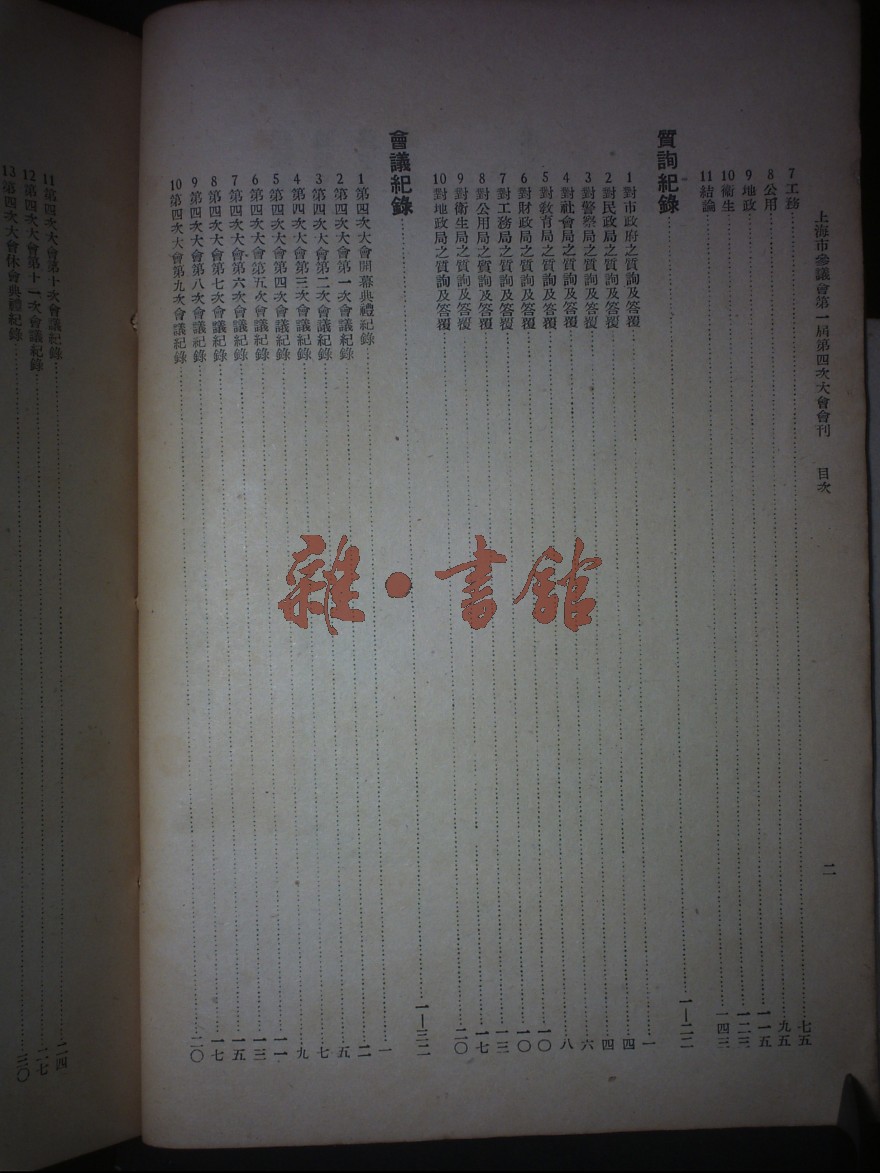 上海市參議會第一屆第四次大會會刊 目次 二
7 工務 七五
8 公用 九五
9 地政 一一五
10 衛生 一二三
11 結論 一四三
質詢紀錄 一—二二
1 對市政府之質詢及答覆 一
2 對民政局之質詢及答覆 四
3 對警察局之質詢及答覆 四
4 對社會局之質詢及答覆 六
5 對敎育局之質詢及答覆 八
6 對財政局之質詢及答覆 一〇
7 對工務局之質詢及答覆 一〇
8 對公用局之質詢及答覆 一三
9 對衛生局之質詢及答覆 一七
10 對地政局之質詢及答覆 二〇
會議紀錄 一—三二
1 第四次大會開幕典禮紀錄 一
2 第四次大會第一次會議紀錄 二
3 第四次大會第二次會議紀錄 五
4 第四次大會第三次會議紀錄 七
5 第四次大會第四次會議紀錄 九
6 第四次大會第五次會議紀錄 一一
7 第四次大會第六次會議紀錄 一三
8 第四次大會第七次會議紀錄 一五
9 第四次大會第八次會議紀錄 一七
10 第四次大會第九次會議紀錄 二〇
11 第四次大會第十次會議紀錄 二四
12 第四次大會第十一次會議紀錄 二七
13 第四次大會休會典禮紀錄 三〇
雜·書館